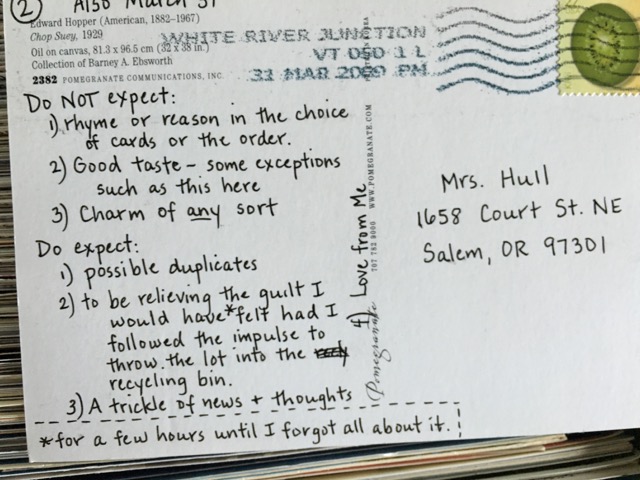 ② Also March 31
Edward Hopper (American, 1882–1967)
Chop Suey, 1929
Oil on canvas, 81.3 x 96.5 cm (32 x 38 in.)
Collection of Barney A. Ebsworth
2382 POMEGRANATE COMMUNICATIONS, INC.
WHITE RIVER JUNCTION
VT 050 1 L
31 MAR 2009 PM
Do NOT expect:
1) rhyme or reason in the choice
of cards or the order.
2) Good taste – some exceptions
such as this here
3) Charm of any sort
Do expect:
1) possible duplicates
2) to be relieving the guilt I
would have *felt had I
followed the impulse to
throw the lot into the
recycling bin.
3) A trickle of news + thoughts
4) Love from Me
*for a few hours until I forgot all about it.
Pomegranate
707 782 9000 WWW.POMEGRANATE.COM
Mrs. Hull
1658 Court St. NE
Salem, OR 97301